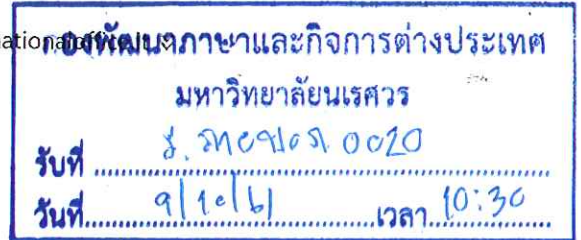 กองพัฒนาภาษาและกิจการต่างประเทศ
มหาวิทยาลัยนเรศวร
รับที่ 0020
วันที่ 9/10/61 เวลา 10:30